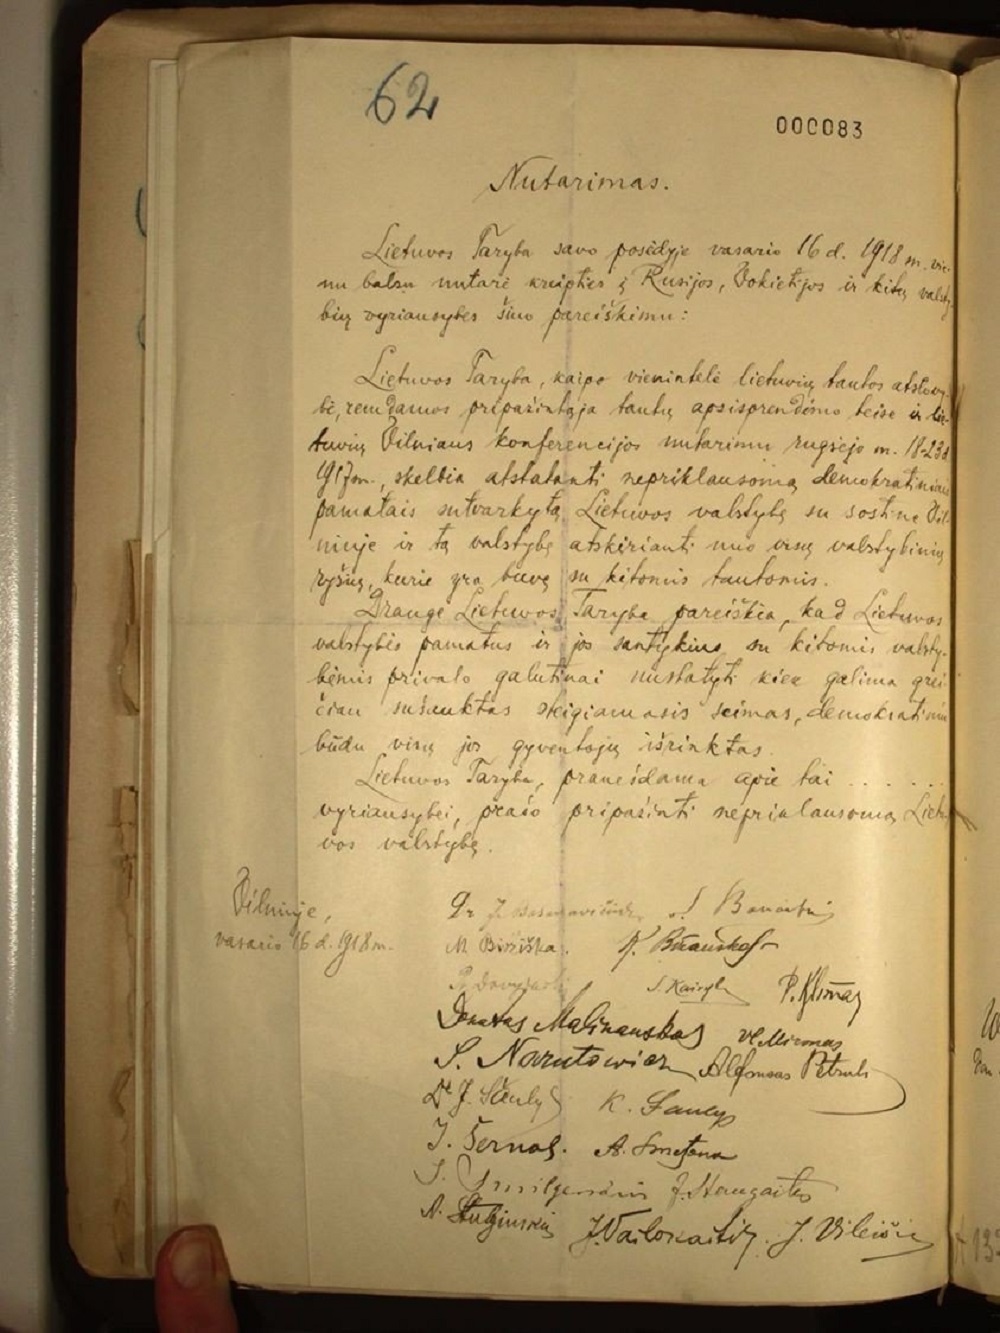 62
000083
Nutarimas.
Lietuvos Taryba savo posėdyje vasario 16 d. 1918 m. vie-
nu balsu nutarė kreiptis į Rusijos, Vokietijos ir kitų valsty-
bių vyriausybes šiuo pareiškimu:
Lietuvos Taryba, kaipo vienintelė lietuvių tautos atstovy-
bė, remdamos pripažintąja tautų apsisprendimo teise ir lie-
tuvių Vilniaus konferencijos nutarimu rugsėjo m. 18-23 d.
1917 m., skelbia atstatanti nepriklausomą demokratiniais
pamatais sutvarkytą Lietuvos valstybę su sostine Vil-
niuje ir tą valstybę atskirianti nuo visų valstybinių
ryšių, kurie yra buvę su kitomis tautomis.
Drauge Lietuvos Taryba pareiškia, kad Lietuvos
valstybės pamatus ir jos santykius su kitomis valsty-
bėmis privalo galutinai nustatyti kiek galima grei-
čiau sušauktas steigiamasis seimas, demokratiniu
būdu visų jos gyventojų išrinktas.
Lietuvos Taryba, pranešdama apie tai . . . . . .
vyriausybei, prašo pripažinti nepriklausomą Lietu-
vos valstybę.
Vilniuje,
vasario 16 d. 1918 m.
Dr J. Basanavičius S. Banaitis
M. Biržiška. K. Bizauskas
S. Kairys P. Klimas
Donatas Malinauskas Vl. Mironas
S. Narutowicz Alfonsas Petrulis
Dr J. Šaulys K. Šaulys
J. Šernas. A. Smetona
J. Smilgevičius J. Staugaitis
A. Stulginskis J. Vailokaitis. J. Vileišis